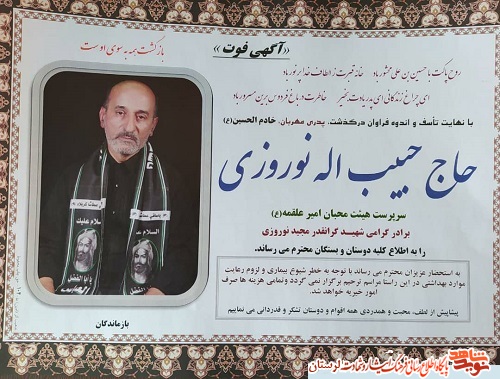 بازگشت همه به سوی اوست
«آگهی فوت»
روح پاکت با حسین بن علی محشور باد خانه قبرت ز الطاف خدا پر نور باد
ای چراغ زندگانی ای پدر یادت بخیر خاطرت در باغ فردوس برین مسرور باد
با نهایت تأسف و اندوه فراوان درگذشت، پدری مهربان، خادم الحسین(ع)
حاج حبیب اله نوروزی
سرپرست هیئت محبان امیر علقمه(ع)
برادر گرامی شهید گرانقدر مجید نوروزی
را به اطلاع کلیه دوستان و بستگان محترم می رساند.
به استحضار عزیزان محترم می رساند با توجه به خطر شیوع بیماری و لزوم رعایت
موارد بهداشتی در این راستا مراسم ترحیم برگزار نمی گردد وتمامی هزینه ها صرف
امور خیریه خواهد شد.
پیشاپیش از لطف، محبت و همدردی همه اقوام و دوستان تشکر و قدردانی می نماییم
بازماندگان
السلام علیک
یا ابا الفضل
نوید شاهد
پایگاه اطلاع رسانی فرهنگ ایثار و شهادت لرستان